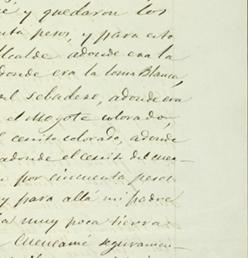 y quedaron los
pesos, y para esto
alcalde adonde era la
donde era la loma Blanca,
adonde era
el Moyote colorado,
cerrito colorado, adonde
adonde el cerrito del
por cincuenta pesos
y para allá mi padre
muy poca tierra
Cuencamé